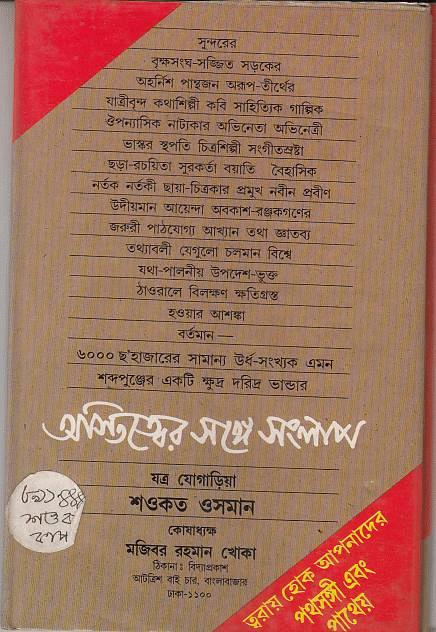 সুন্দরের
বৃক্ষসংঘ-সজ্জিত সড়কের
অহর্নিশ পান্থজন অরূপ-তীর্থের
যাত্রীবৃন্দ কথাশিল্পী কবি সাহিত্যিক গাল্পিক
ঔপন্যাসিক নাট্যকার অভিনেতা অভিনেত্রী
ভাস্কর স্থপতি চিত্রশিল্পী সংগীতস্রষ্টা
ছড়া-রচয়িতা সুরকর্তা বয়াতি বৈহাসিক
নর্তক নর্তকী ছায়া-চিত্রকার প্রমুখ নবীন প্রবীণ
উদীয়মান আয়েন্দা অবকাশ-রঞ্জকগণের
জরুরী পাঠযোগ্য আখ্যান তথা জ্ঞাতব্য
তথ্যাবলী যেগুলো চলমান বিশ্বে
যথা-পালনীয় উপদেশ-ভুক্ত
ঠাওরালে বিলক্ষণ ক্ষতিগ্রস্ত
হওয়ার আশঙ্কা
বর্তমান —
৬০০০ ছ'হাজারের সামান্য উর্ধ-সংখ্যক এমন
শব্দপুঞ্জের একটি ক্ষুদ্র দরিদ্র ভান্ডার
অস্তিত্বের সঙ্গে সংলাপ
যত্র যোগাড়িয়া
শওকত ওসমান
কোষাধ্যক্ষ
মজিবর রহমান খোকা
ঠিকানা: বিদ্যাপ্রকাশ
আটত্রিশ বাই চার, বাংলাবাজার
ঢাকা-১১০০
ত্বরায় হোক আপনাদের
পথসঙ্গী এবং
পাথেয়
শওক